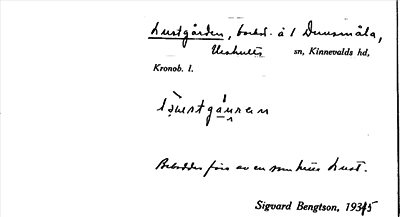 Lustgården, bebod. å 1 Dunsmåla,
Urshults sn, Kinnevalds hd,
Kronob. l.
Bebodder förs av en som hette Lust.
Sigvard Bengtson, 1935